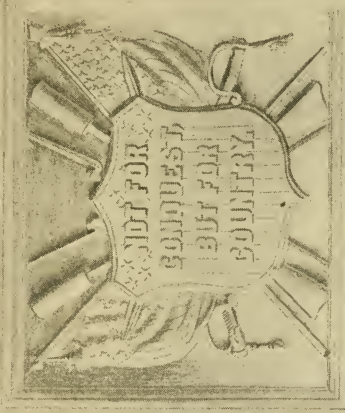 NOT FOR
CONQUEST,
BUT FOR
COUNTRY.